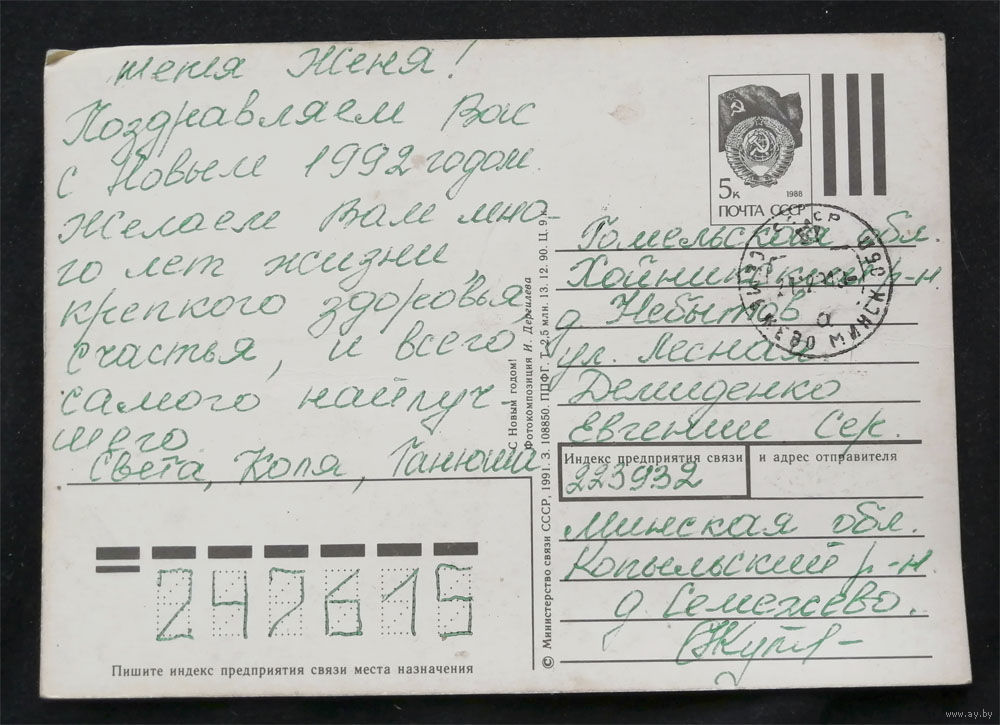 Женя!
Поздравляем Вас
с Новым 1992 годом.
Желаем Вам мно-
го лет жизни,
крепкого здоровья,
счастья, и всего
самого найлуч
шего
Света, Коля, Танюша
Пишите индекс предприятия связи места назначения
247615
С Новым годом!
Фотокомпозиция И. Дергилева
© Министерство связи СССР, 1991. З. 108850. ППФГ. Т. 2,5 млн. 13. 12. 90. Ц. 9 к.
5к
1988
ПОЧТА СССР
СЕМЕЖЕВО МИНСК. ОБЛ
Гомельская обл.
Хойникский р-н
д. Небытов
ул. Лесная
Демиденко
Евгении Сер.
Индекс предприятия связи и адрес отправителя
223932
Минская обл.
Копыльский р-н
д. Семежево.
www.ay.by